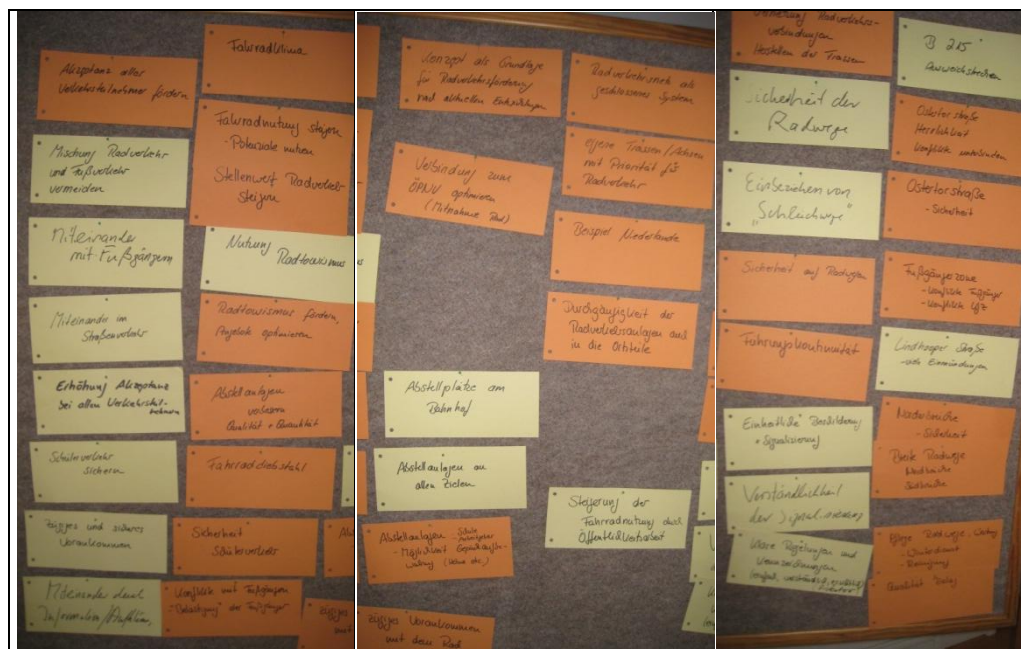 Akzeptanz aller
Verkehrsteilnehmer fördern
Mischung Radverkehr
und Fußverkehr
vermeiden
Miteinander
mit Fußgängern
Miteinander im
Straßenverkehr
Erhöhung Akzeptanz
bei allen Verkehrsteil-
nehmern
Schülerverkehr
sichern
Zügiges und sicheres
Vorankommen
Miteinander durch
Information/Aufklärung
Fahrradklima
Fahrradnutzung steigern
- Potenziale nutzen
Stellenwert Radverkehr
steigern
Nutzung
Radtourismus
Radtourismus fördern,
Projekte optimieren
Abstellanlagen
verbessern
Qualität + Quantität
Fahrraddiebstahl
Sicherheit
Schülerverkehr
Konflikte mit Fußgängern
- "Belästigung" der Fußgänger
Konzept als Grundlage
für Radverkehrsförderung
und aktuellen Entwicklungen
Verbindung zum
ÖPNV optimieren
(Mitnahme Rad)
Abstellplätze am
Bahnhof
Abstellanlagen an
allen Zielen
Abstellanlagen - Schule
- Arbeitgeber
- Möglichkeit Gepäckaufbe-
wahrung (Helme etc.)
Zügiges Vorankommen
mit dem Rad
Radverkehrsnetz als
geschlossenes System
eigene Trassen/Achsen
mit Priorität für
Radverkehr
Beispiel Niederlande
Durchgängigkeit der
Radverkehrsanlagen auch
in die Ortsteile
Steigerung der
Fahrradnutzung durch
Öffentlichkeitsarbeit
Radverkehrs-
verbindungen
Herstellen der Trassen
Sicherheit der
Radwege
Einbeziehen von
"Schleichwege"
Sicherheit auf Radwegen
Führungskontinuität
Einheitliche Beschilderung
+ Signalisierung
Verständlichkeit
der Signalisierung
Klare Regelungen und
Kennzeichnungen
B 215
Ausweichstrecken
Osterstorstraße
Konflikte unterbinden
Ostertorstraße
- Sicherheit
Fußgängerzone
- Konflikte Fußgänger
- Konflikte Kfz
Lindhooper Straße
- viele Einmündungen
Nordbrücke
- Sicherheit
Breite Radwege
Nordbrücke
Südbrücke
Pflege Radwege, Wartung
- Winterdienst
- Reinigung
Qualität